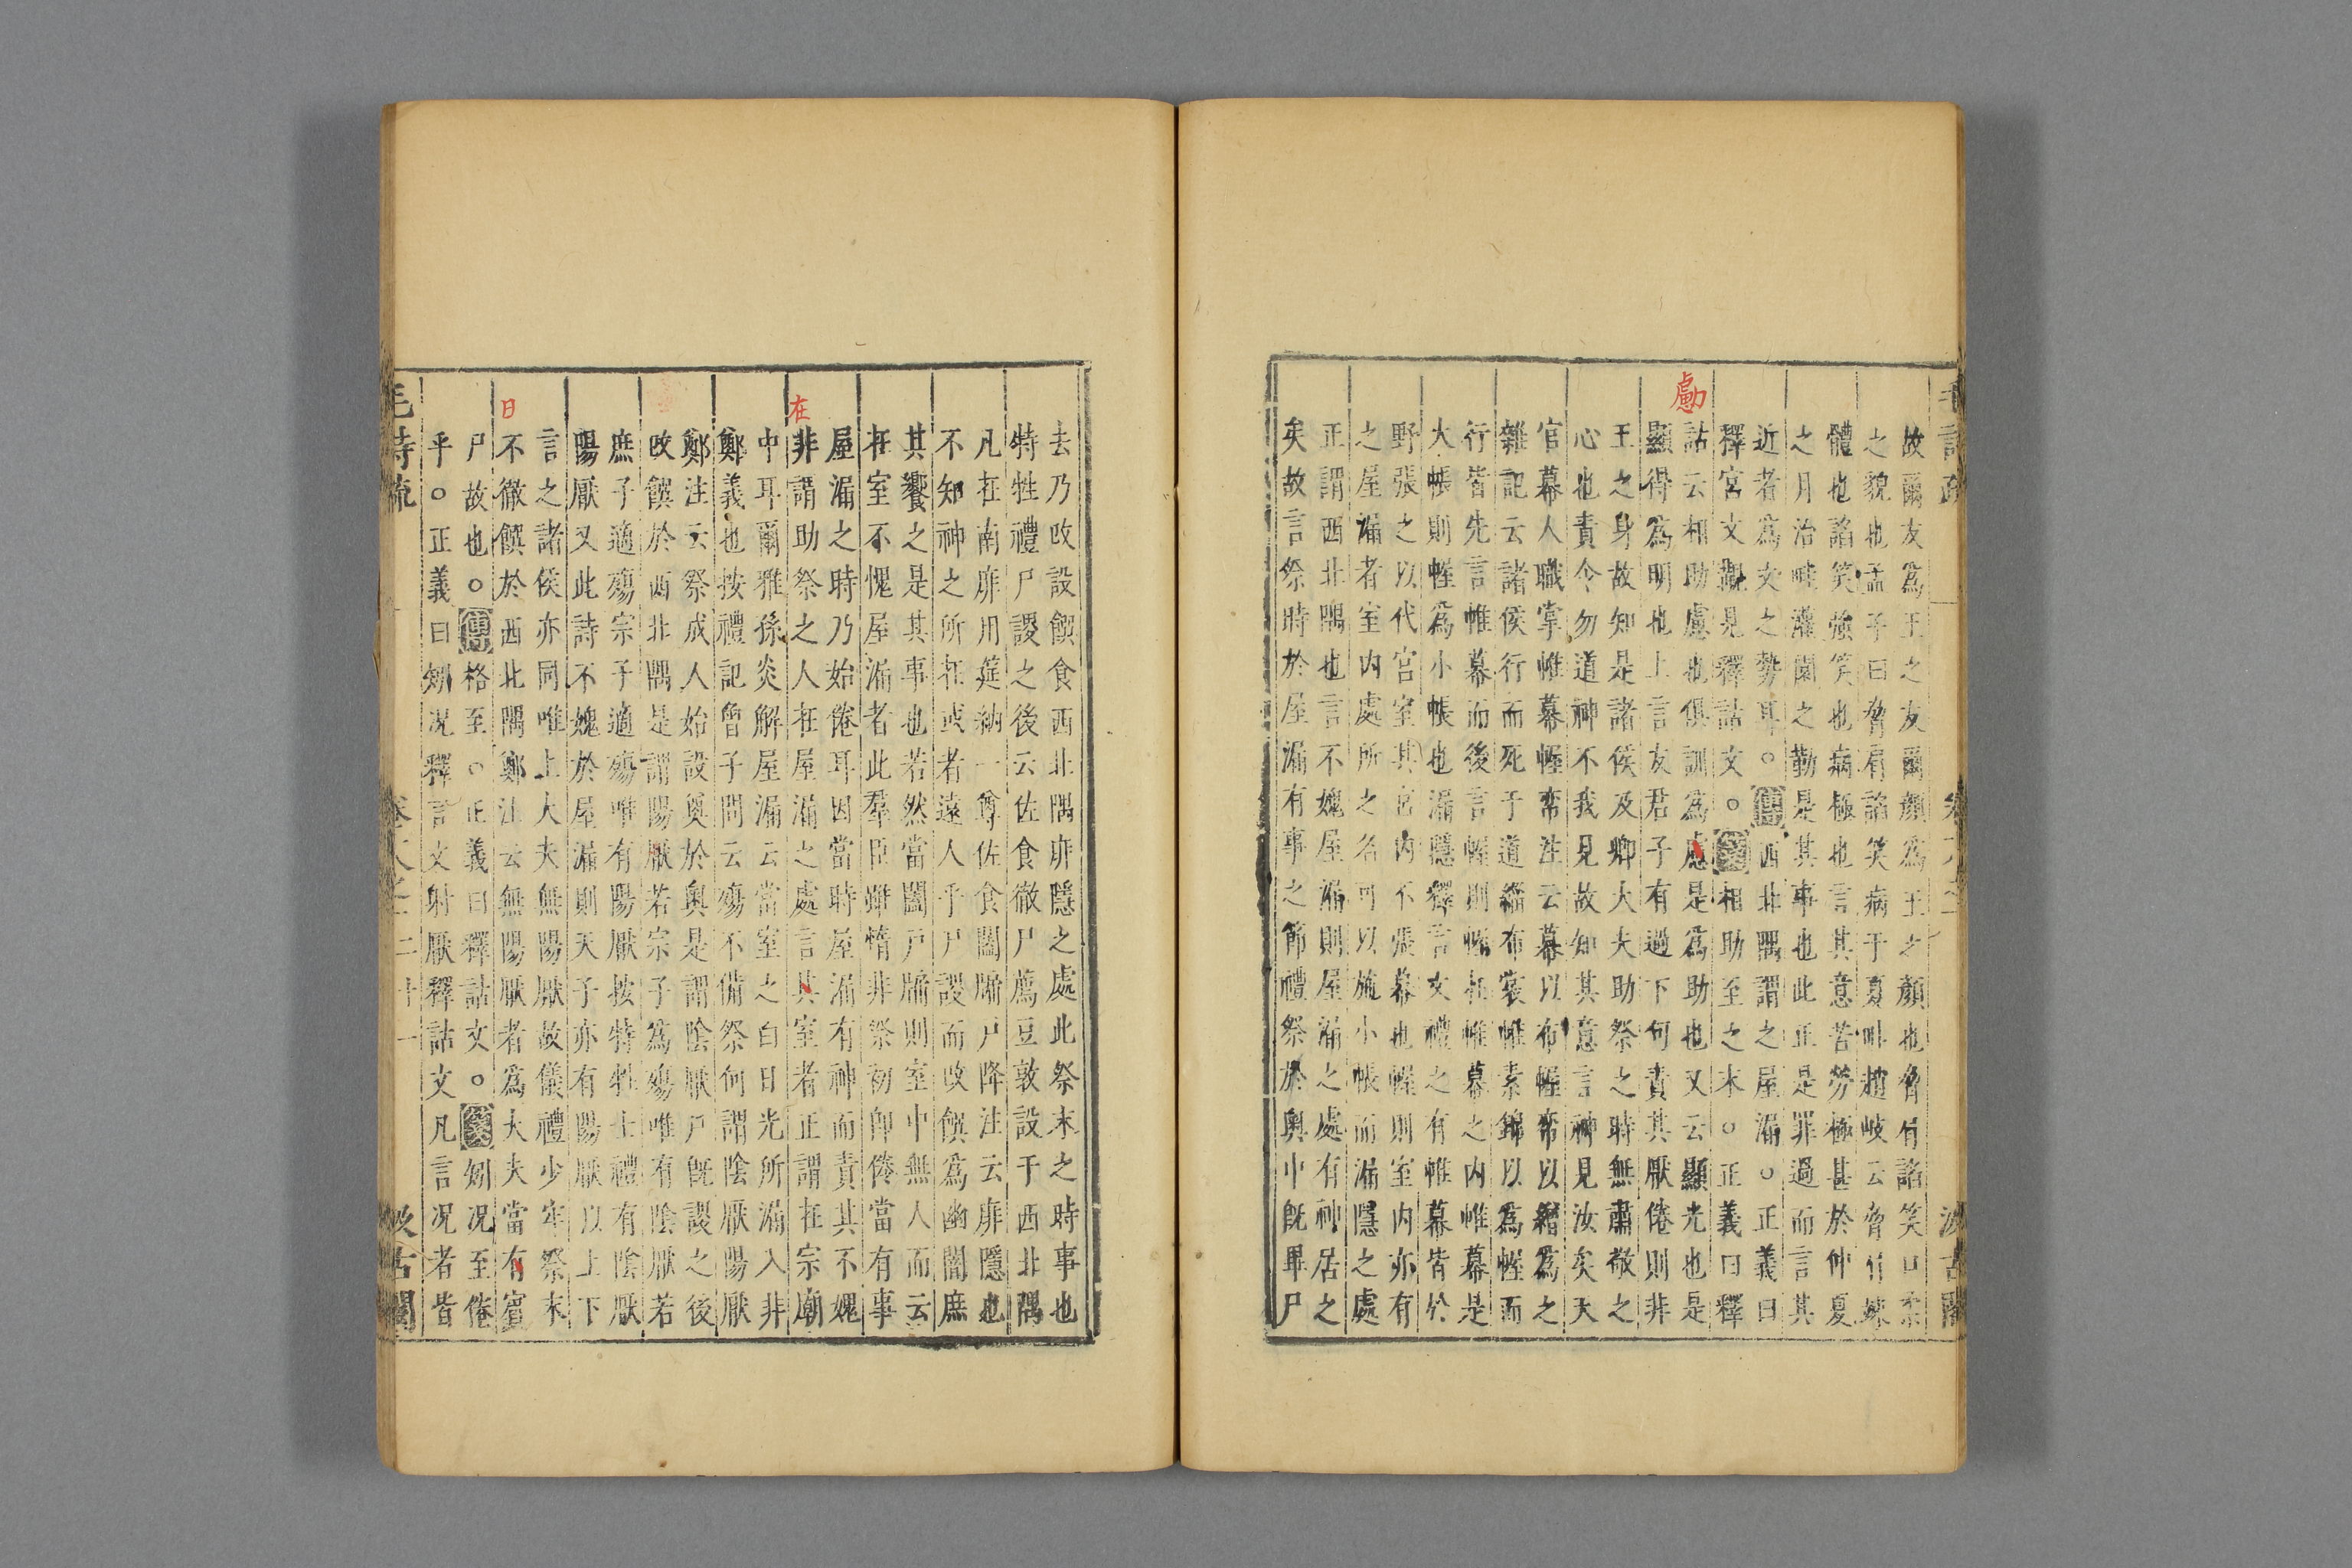 毛詩疏
汲古閣
故爾友爲王之友爾顏爲王之顏也脅肩諂笑口柔
之貌也孟子曰脅肩諂笑病于夏畦趙岐云脅肩竦
體也諂笑強笑也病極也言其意苦勞極甚於仲夏
之月治畦灌園之勤是其事也此正是罪過而言其
近者爲文之勢耳○傳西北隅謂之屋漏○正義曰
釋宮文觀見釋詁文○箋相助至之末○正義曰釋
勴
詁云相助慮也俱訓爲慮是爲助也又云顯光也是
顯得爲明也上言友君子有過下何責其厭倦則非
王之身故知是諸侯及卿大夫助祭之時無肅敬之
心也責令勿道神不我見故知其意言神見汝矣天
官幕人職掌帷幕幄帟注云幕以布幄帟以繒爲之
雜記云諸侯行而死于道緇布裳帷素錦以爲幄而
行皆先言帷幕而後言幄則幄在帷幕之內帷幕是
大帳則幄爲小帳也漏隱釋言文禮之有帷幕皆於
野張之以代宮室其宮內不張幕也幄則室內亦有
之屋漏者室內處所之名可以施小帳而漏隱之處
正謂西北隅也言不媿屋漏則屋漏之處有神居之
矣故言祭時於屋漏有事之節禮祭於奧中旣畢尸
去乃改設饌食西北隅厞隱之處此祭末之時事也
特牲禮尸謖之後云佐食徹尸薦豆敦設于西北隅
几在南厞用筵納一尊佐食闔牖戶降注云厞隱也
不知神之所在或者遠人乎尸謖而改饌爲幽闇庶
其饗之是其事也若然當闔戶牖則室中無人而云
在室不愧屋漏者此羣臣雖惰非祭初卽倦當有事
屋漏之時乃始倦耳因當時屋漏有神而責其不媿
在
非謂助祭之人在屋漏之處言其室者正謂在宗廟
中耳爾雅孫炎解屋漏云當室之白日光所漏入非
鄭義也按禮記曾子問云殤不備祭何謂陰厭陽厭
鄭注云祭成人始設奠於奧是謂陰厭尸旣謖之後
改饌於西北隅是謂陽厭若宗子爲殤唯有陰厭若
庶子適殤宗子適殤唯有陽厭按特牲士禮有陰厭
陽厭又此詩不媿於屋漏則天子亦有陽厭以上下
言之諸侯亦同唯上大夫無陽厭故儀禮少牢祭末
日
不徹饌於西北隅鄭注云無陽厭者爲大夫當有賓
尸故也○傳格至○正義曰釋詁文○箋矧況至倦
乎○正義曰矧况釋言文射厭釋詁文凡言况者皆
毛詩疏
二十一
汲古閣